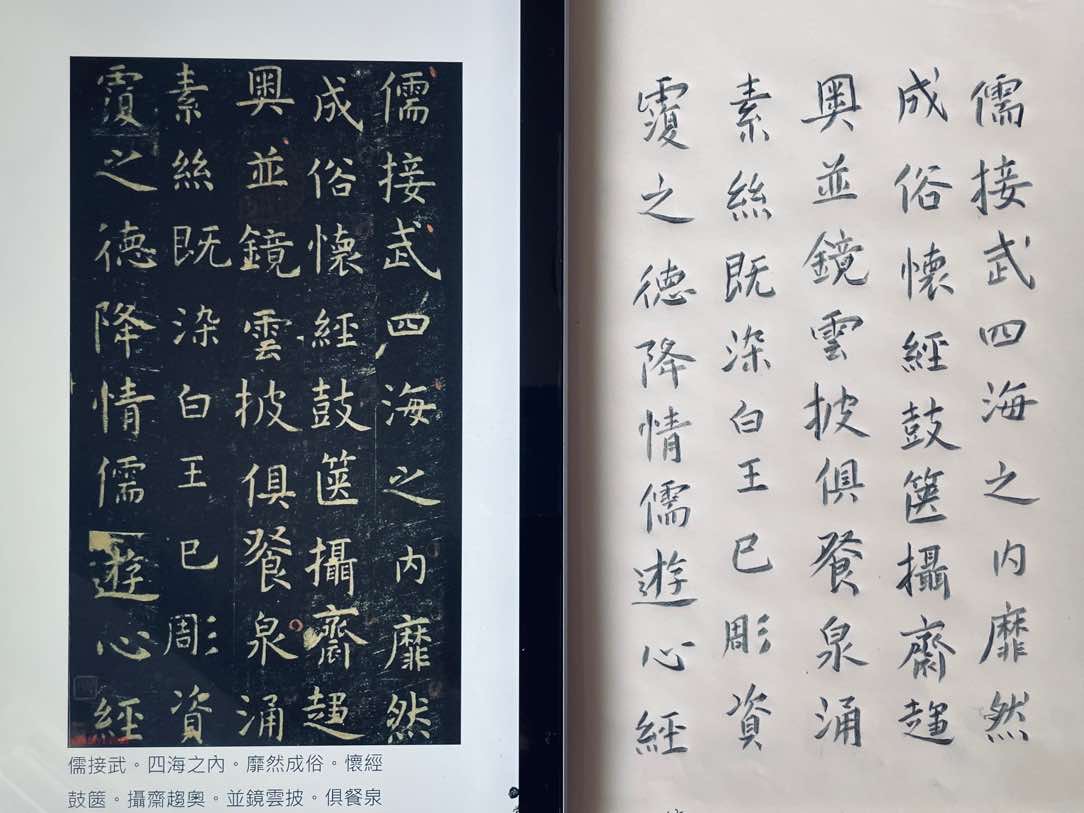 儒接武四海之内靡然
成俗懷經鼓篋攝齋趍
奥並鏡雲披俱飡泉涌
素絲既染白王已彫資
覆之德降情儒遊心經
儒接武。四海之內。靡然成俗。懷經
鼓篋。攝齋趨奧。並鏡雲披。俱餐泉
儒接武四海之内靡然
成俗懷經鼓篋攝齋趍
奥並鏡雲披俱飡泉涌
素絲既染白王已彫資
覆之德降情儒遊心經